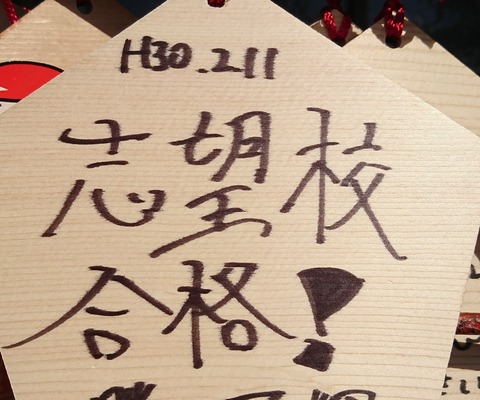 H30.2.11
志望校
合格!